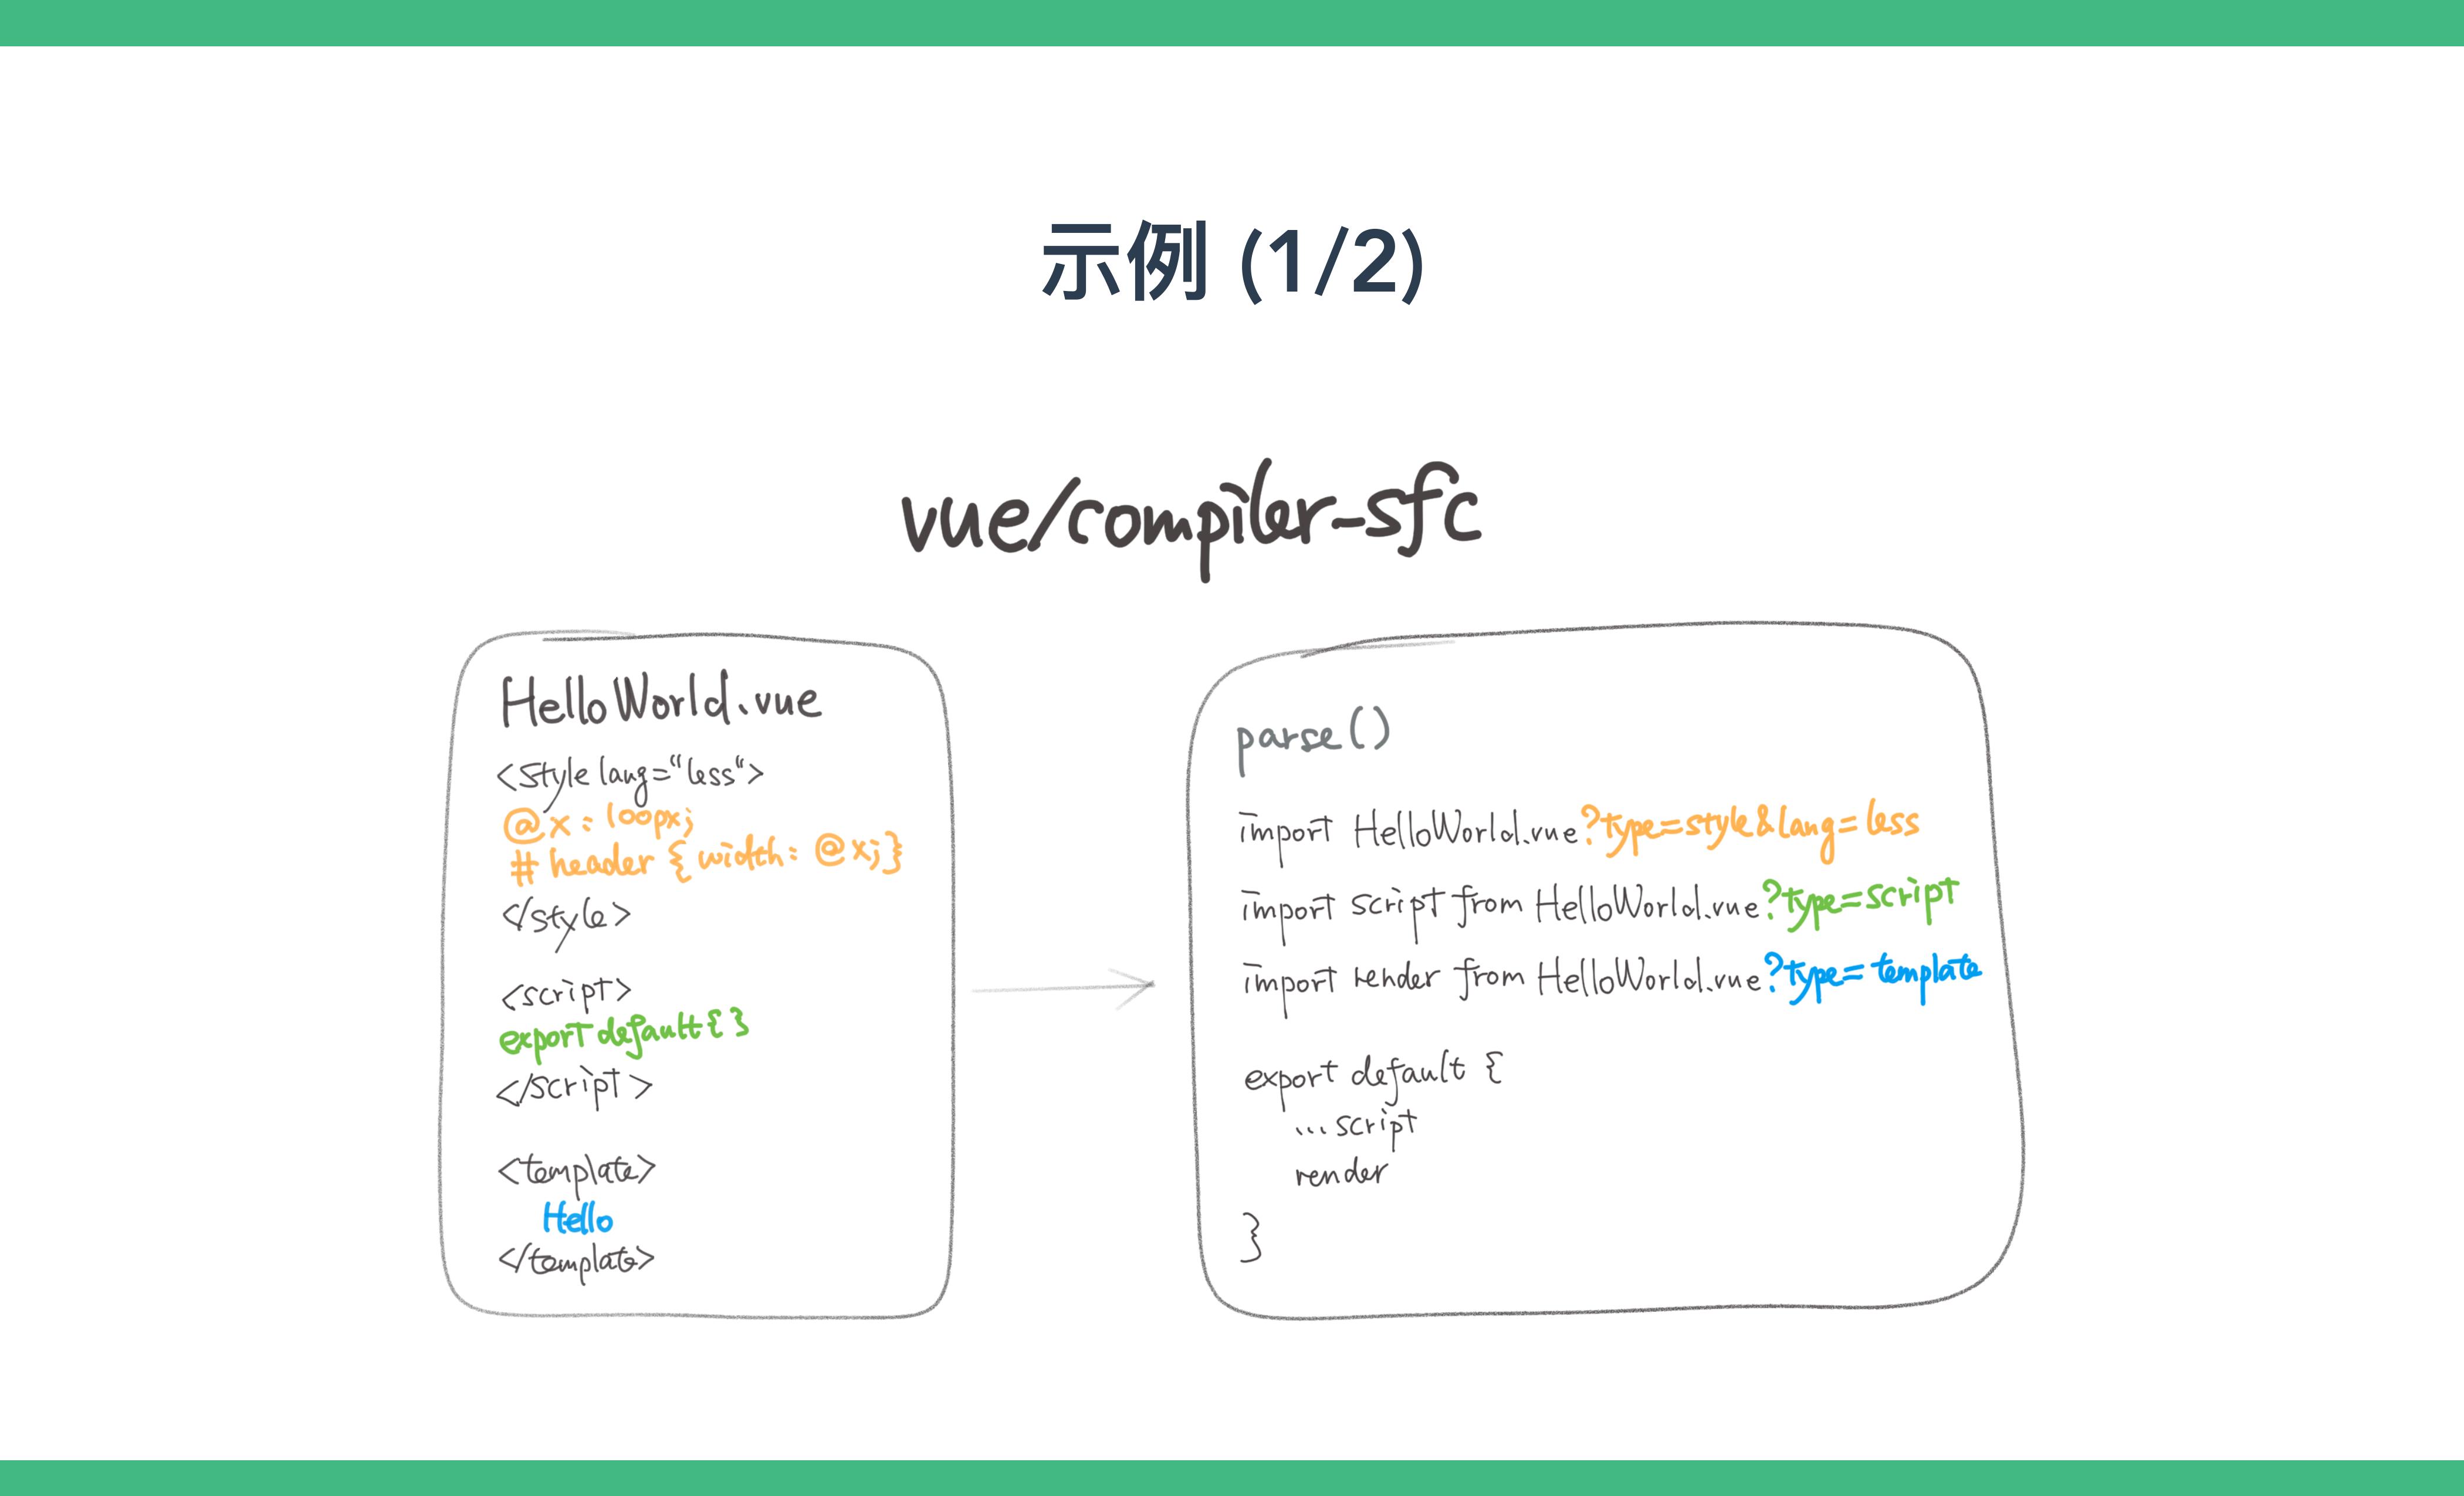 示例 (1/2)
vue/compiler-sfc
HelloWorld.vue
<style lang="less">
@x: 100px;
#header { width: @x; }
</style>
<script>
export default { }
</script>
<template>
Hello
</template>
parse()
import HelloWorld.vue?type=style&lang=less
import script from HelloWorld.vue?type=script
import render from HelloWorld.vue?type=template
export default {
...script
render
}